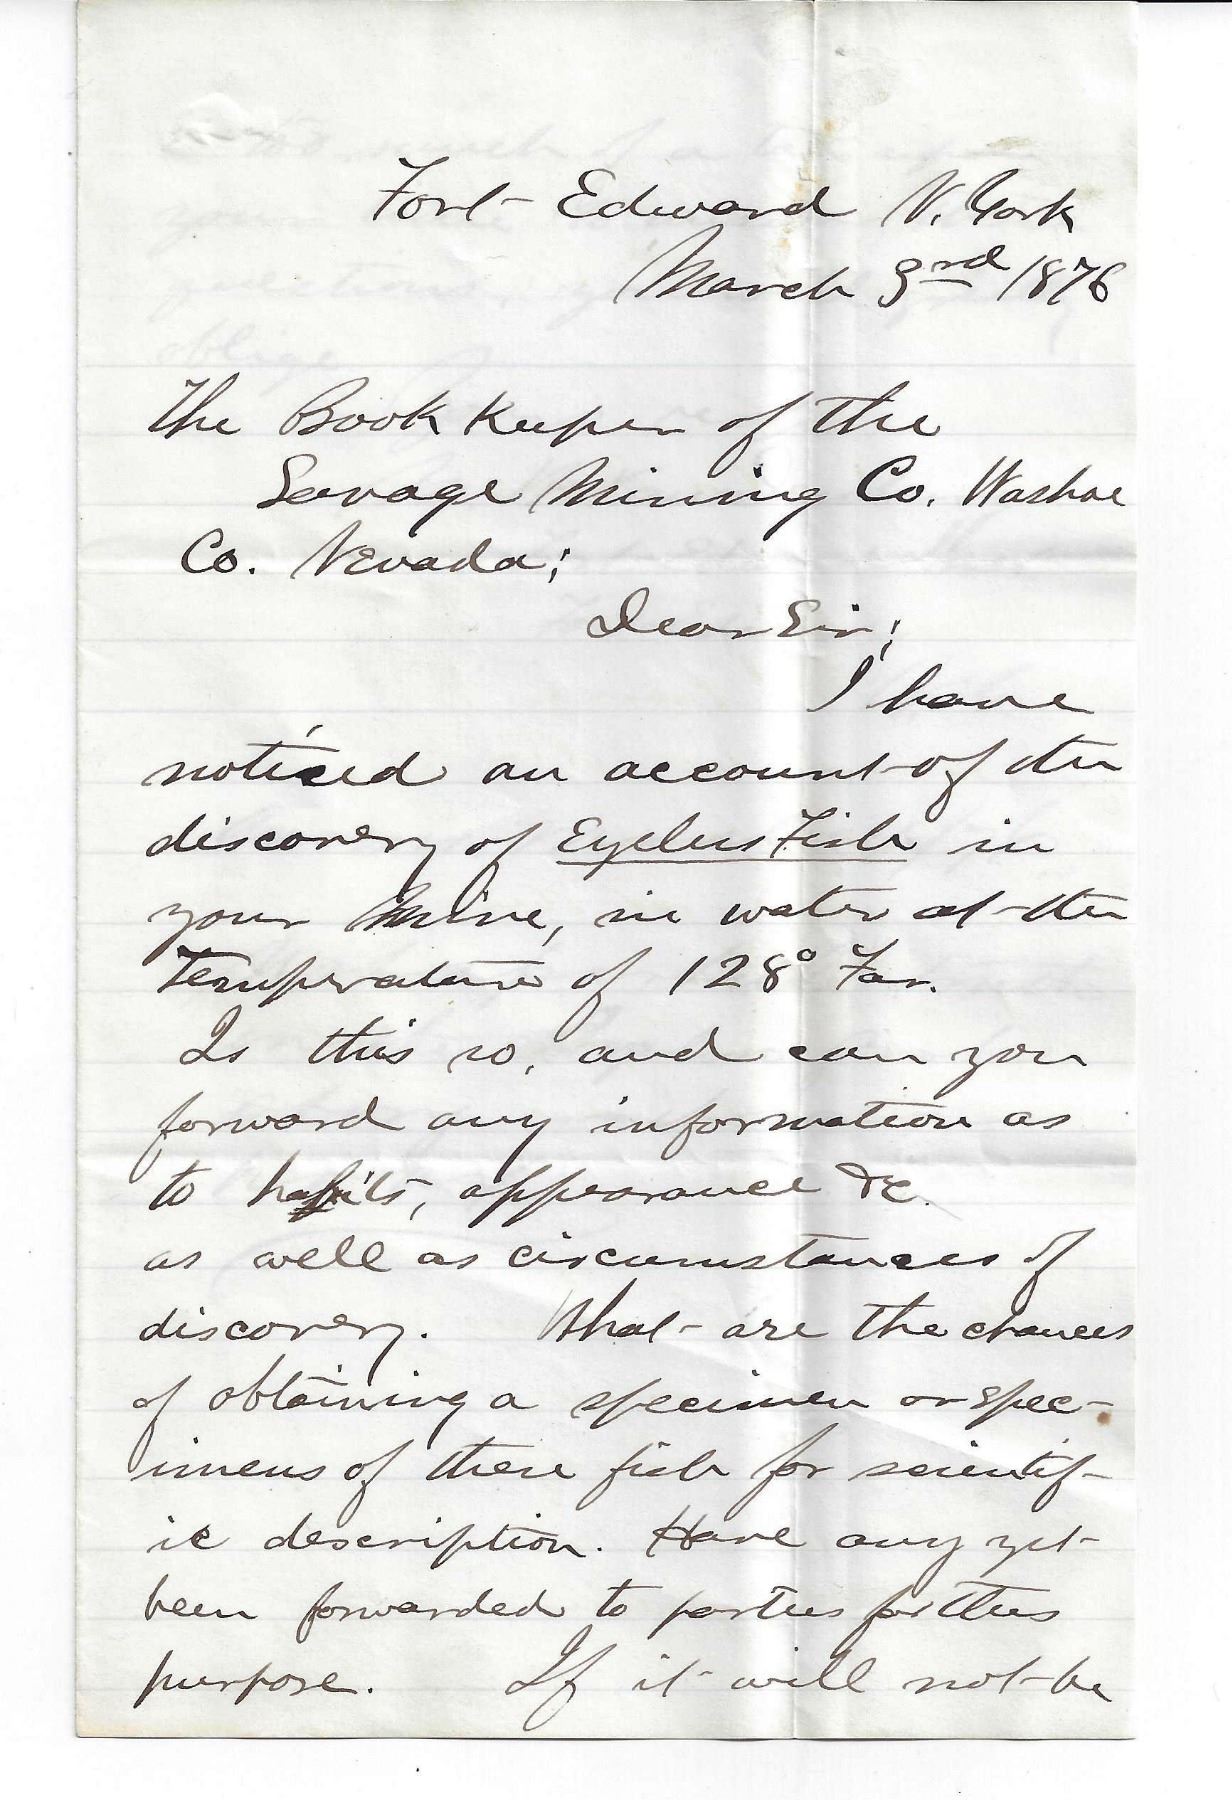 Fort Edward N. York
March 3rd 1876
The Book Keeper of the
Savage Mining Co. Washoe
Co. Nevada;
Dear Sir;
I have
noticed an account of the
discovery of Eyeless Fish in
your Mine, in water at the
Temperature of 128° Far.
Is this so, and can you
forward any information as
to habits, appearance &c.
as well as circumstances of
discovery. What are the chances
of obtaining a specimen or spec-
imens of these fish for scientif-
ic description. Have any yet
been forwarded to parties for this
purpose. If it will not be